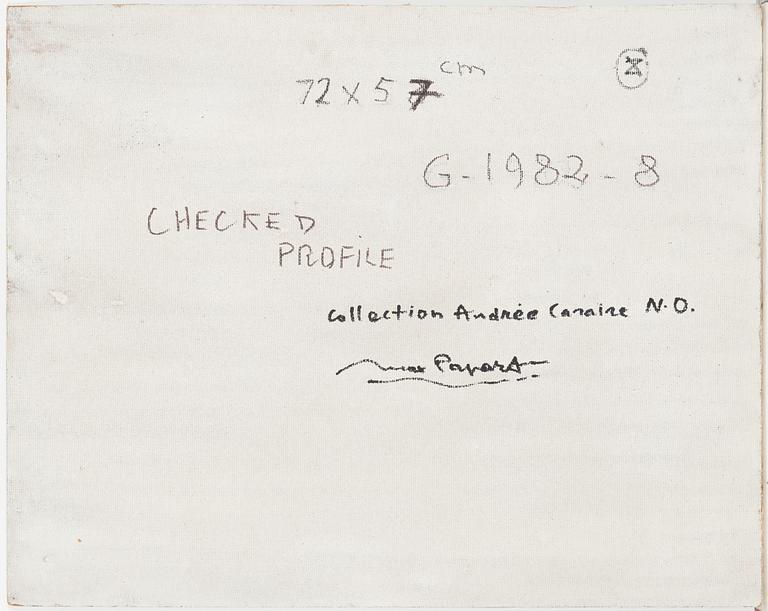 72 x 57 cm
G-1982-8
CHECKED
PROFILE
Collection Andrée Canaire N.O.
Max Papart